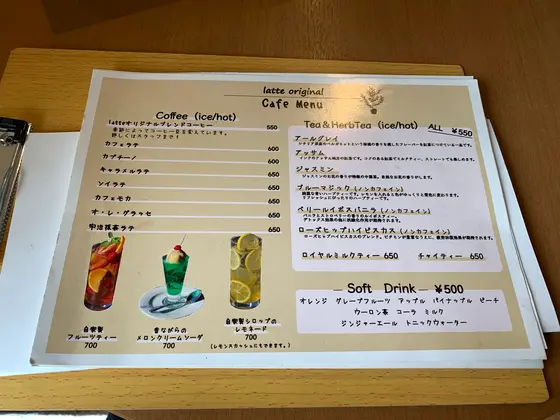 latte original
Cafe Menu
Coffee (ice/hot)
latteオリジナルブレンドコーヒー 550
季節によってコーヒー豆を変えています。
詳しくはスタッフまで!
カフェラテ 600
カプチーノ 600
キャラメルラテ 650
ソイラテ 650
カフェモカ 650
オ・レ・グラッセ 650
宇治抹茶ラテ 650
自家製
フルーツティー
700
昔ながらの
メロンクリームソーダ
700
自家製シロップの
レモネード
700
(レモンスカッシュにもできます。)
Tea&HerbTea (ice/hot) ALL ¥550
アールグレイ
アッサム
ジャスミン
ジャスミンのお花の香りが特徴の中国茶。
ブルーマジック(ノンカフェイン)
ベリールイボスバニラ(ノンカフェイン)
ローズヒップハイビスカス(ノンカフェイン)
ロイヤルミルクティー 650 チャイティー 650
Soft Drink ¥500
オレンジ グレープフルーツ アップル パイナップル ピーチ
ウーロン茶 コーラ ミルク
ジンジャーエール トニックウォーター